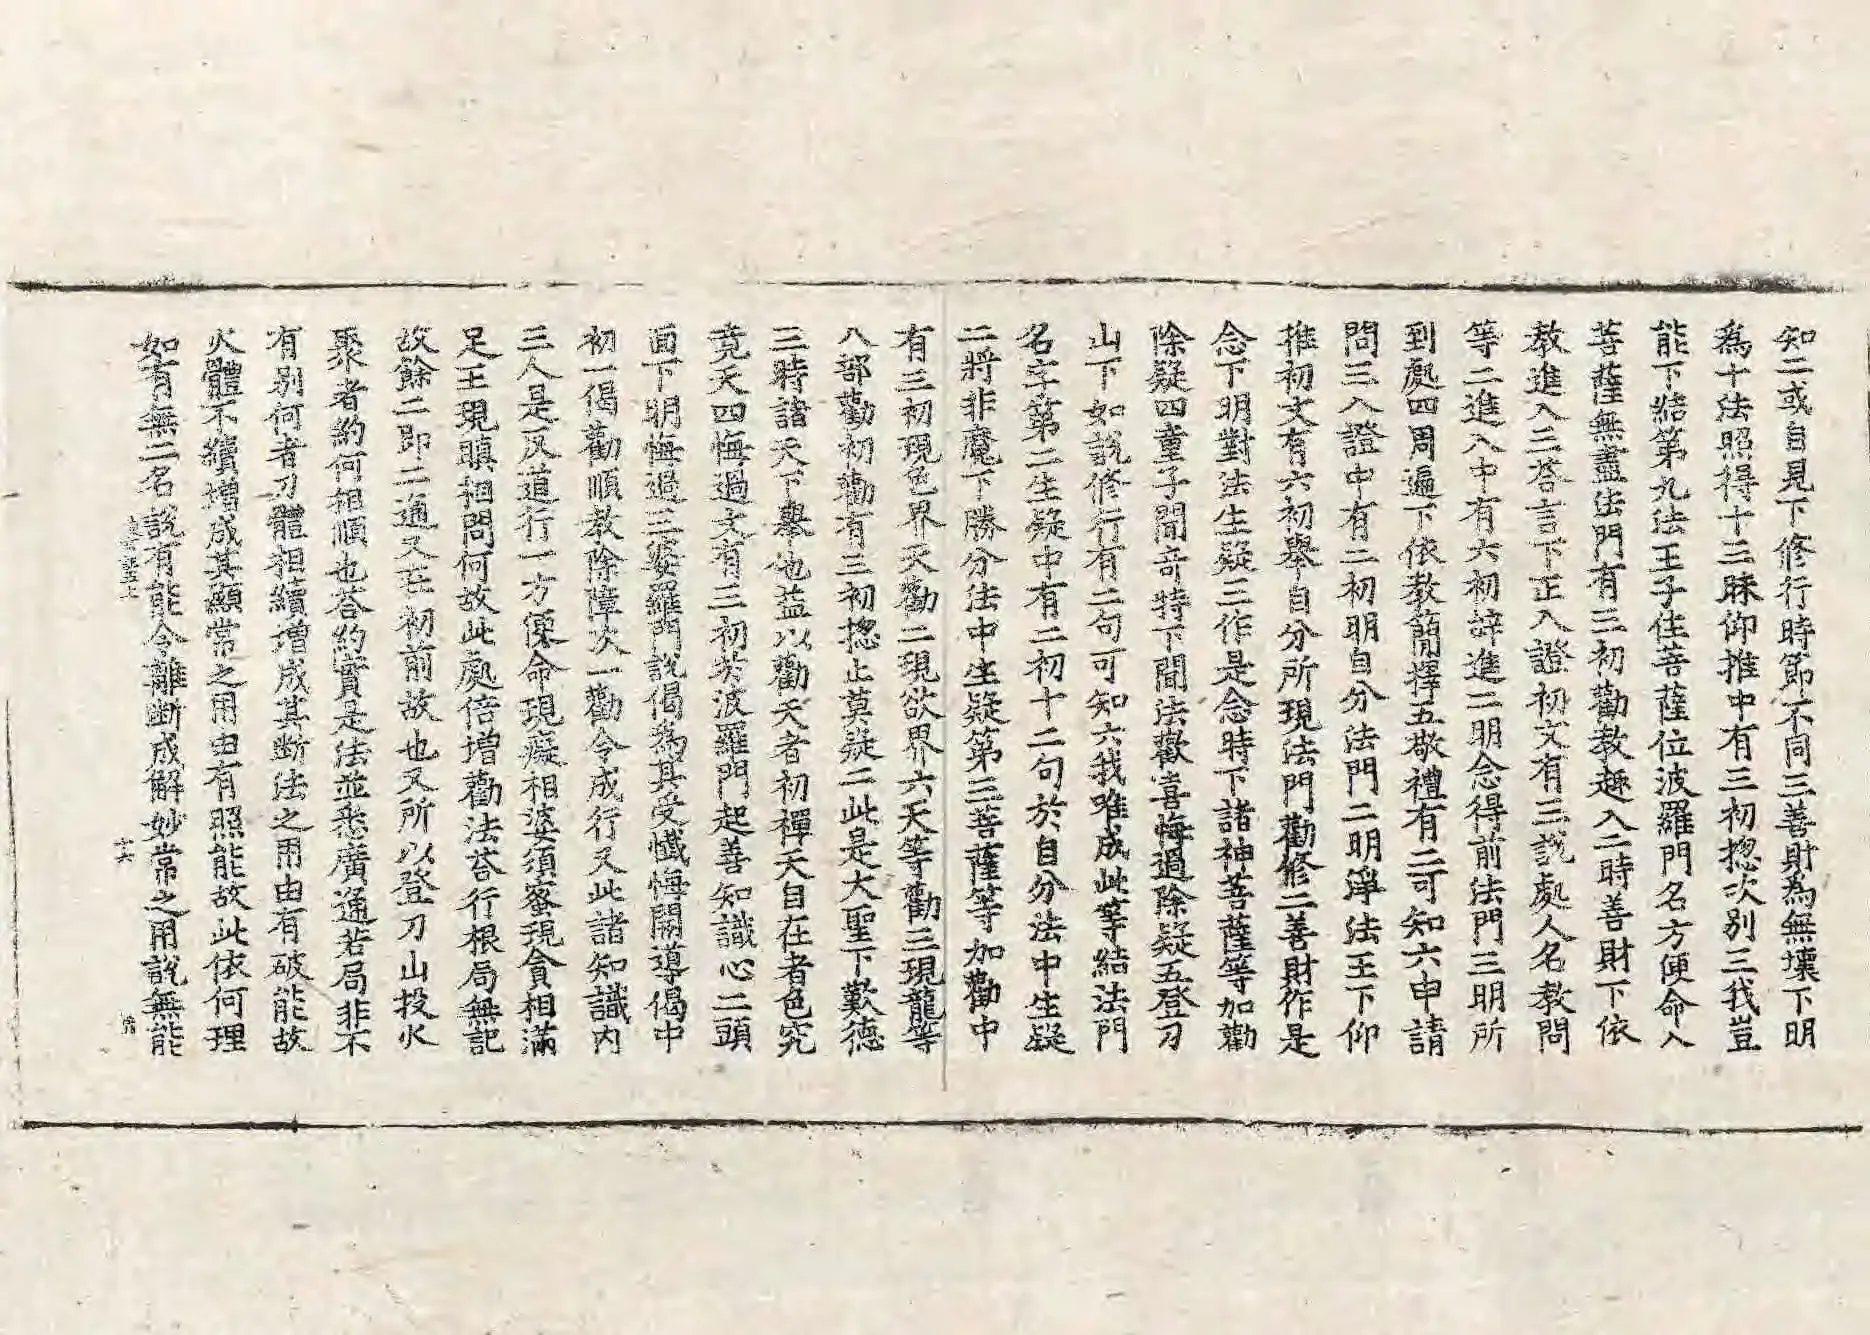 知二或自見下修行時節不同三善財為無壞下明
為十法照得十三昧仰推中有三初揔次別三我豈
能下結第九法王子住菩薩位波羅門名方便命入
菩薩無盡法門有三初勸教趣入二時善財下依
教進入三荅言下正入證初文有三說處人名教問
等二進入中有六初辝進二明念得前法門三明所
到處四周遍下依教簡擇五敬禮有二可知六申請
問三入證中有二初明自分法門二明淨法王下仰
推初文有六初舉自分所現法門勸修二善財作是
念下明對法生疑三作是念時下諸神菩薩等加勸
除疑四童子聞竒特下聞法歡喜悔過除疑五登刀
山下如說修行有二句可知六我唯成此等結法門
名字第二生疑中有二初十二句於自分法中生疑
二將非魔下勝分法中生疑第三菩薩等加勸中
有三初現色界天勸二現欲界六天等勸三現龍等
八部勸初勸有三初揔止莫疑二此是大聖下歎德
三時諸天下舉也益以勸天者初禪天自在者色究
竟天四悔過文有三初於波羅門起善知識心二頭
面下明悔過三婆羅門說偈為其受懺悔開導偈中
初一偈勸順教除障次一勸令成行又此諸知識內
三人是反道行一方便命現癡相婆須蜜現貪相滿
足王現瞋相問何故此處倍增勸法荅行根局無記
故餘二即二通又在初前故也又所以登刀山投火
聚者約何相順也荅約實是法並悉廣通若局非不
有別何者刀體相續增成其斷法之用由有破能故
火體不續增成其顯常之用由有照能故此依何理
如有無二名說有能令離斷成解妙常之用說無能
十六